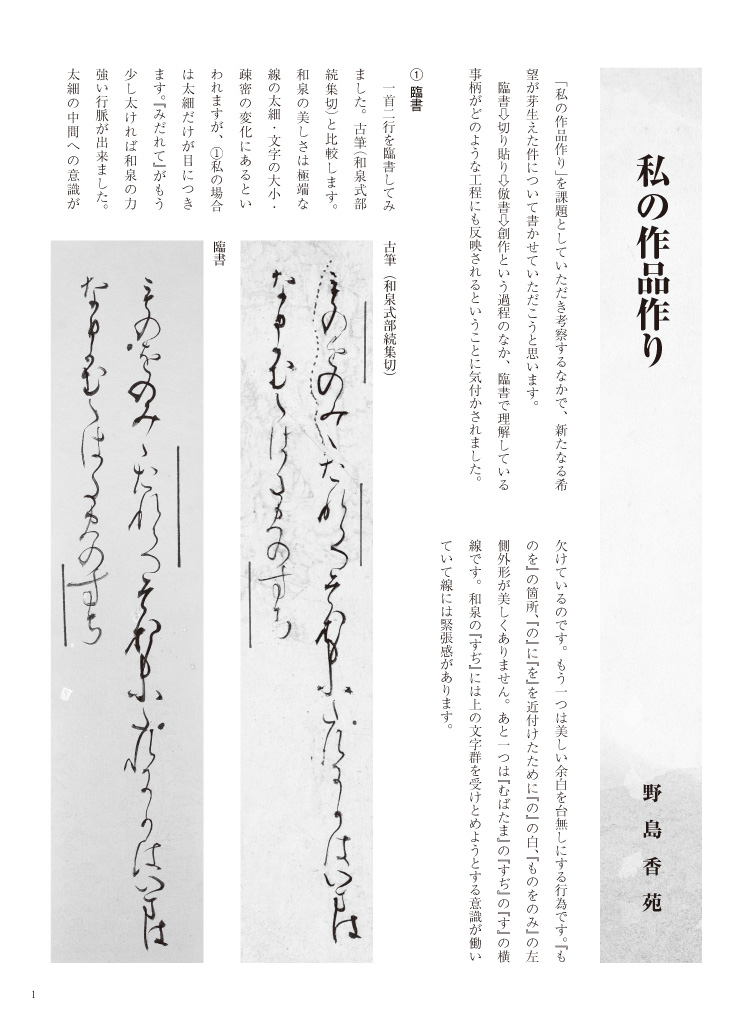 私の作品作り
野島香苑
「私の作品作り」を課題としていただき考察するなかで、新たなる希
望が芽生えた件について書かせていただこうと思います。
臨書⇨切り貼り⇨倣書⇨創作という過程のなか、臨書で理解している
事柄がどのような工程にも反映されるということに気付かされました。
① 臨書
一首二行を臨書してみ
ました。古筆(和泉式部
続集切)と比較します。
和泉の美しさは極端な
線の太細・文字の大小・
疎密の変化にあるとい
われますが、①私の場合
は太細だけが目につき
ます。『みだれて』がもう
少し太ければ和泉の力
強い行脈が出来ました。
太細の中間への意識が
欠けているのです。もう一つは美しい余白を台無しにする行為です。『も
のを』の箇所、『の』に『を』を近付けたために『の』の白、『ものをのみ』の左
側外形が美しくありません。あと一つは『むばたま』の『すぢ』の『す』の横
線です。和泉の『すぢ』には上の文字群を受けとめようとする意識が働い
ていて線には緊張感があります。
古筆(和泉式部続集切)
臨書
1